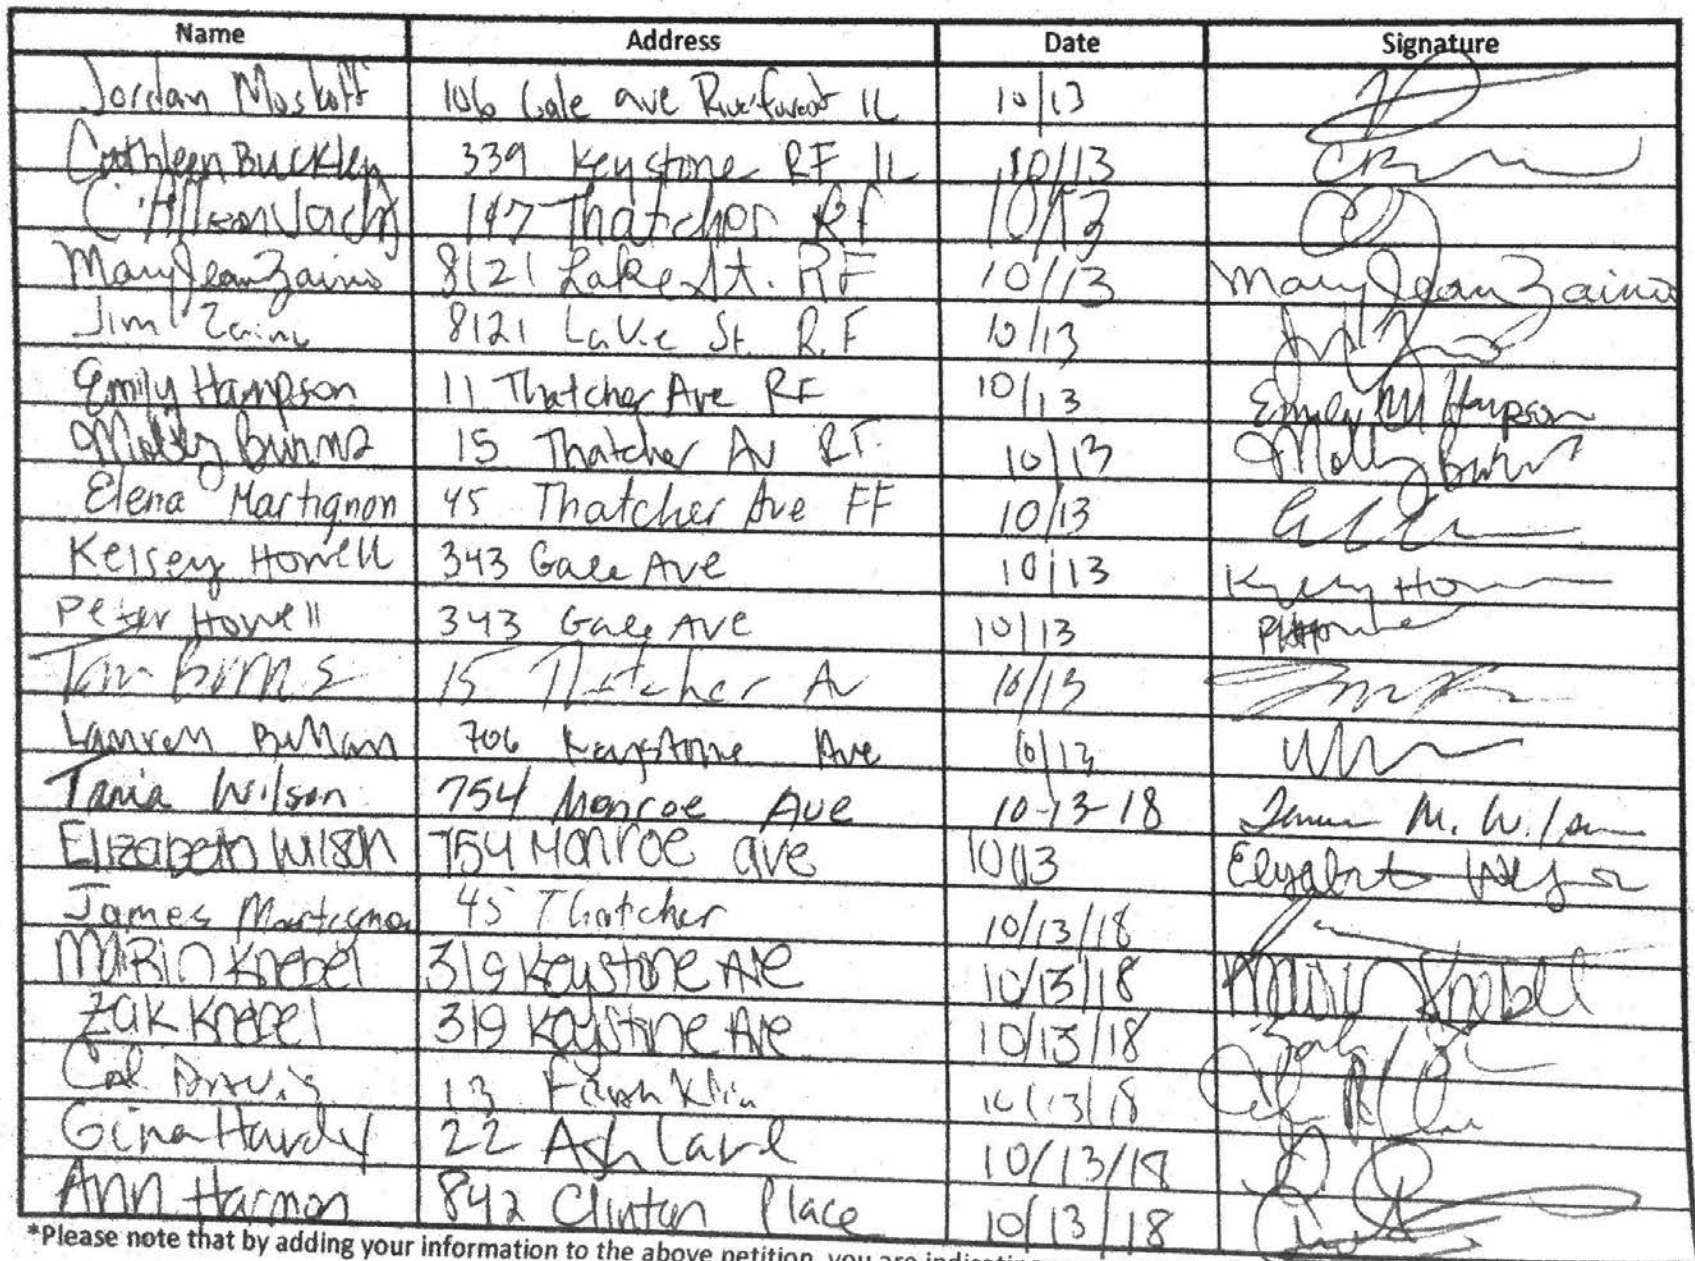 Name Address Date Signature
Jordan Moskoff 106 Gale ave River forest IL 10/13
Cathleen Buckley 339 Keystone RF IL 10/13 CB
147 Thatcher RF 10/13
Mary Jean Zaino 8121 Lake St. RF 10/13 Mary Jean Zaino
Jim Zaino 8121 Lake St. R.F 10/13
Emily Hampson 11 Thatcher Ave RF 10/13 Emily M Hampson
Molly Burns 15 Thatcher Av RF 10/13 Molly Burns
Elena Martignon 45 Thatcher Ave FF 10/13
Kelsey Howell 343 Gale Ave 10/13
Peter Howell 343 Gale Ave 10/13
Tom Burns 15 Thatcher Av 10/13
Lauren 706 Keystone Ave 10/13
Tania Wilson 754 Monroe Ave 10-13-18 M. Wilson
Elizabeth Wilson 754 Monroe ave 10/13 Elizabeth
James Martignon 45 Thatcher 10/13/18
Mario Knebel 319 Keystone Ave 10/13/18 Mario Knebel
Zak Knebel 319 Keystone Ave 10/13/18 Zak
Cal Davis 13 Franklin 10/13/18
Gina Hardy 22 Ashland 10/13/18
Ann Harmon 842 Clinton Place 10/13/18
*Please note that by adding your information to the above petition, you are indicating